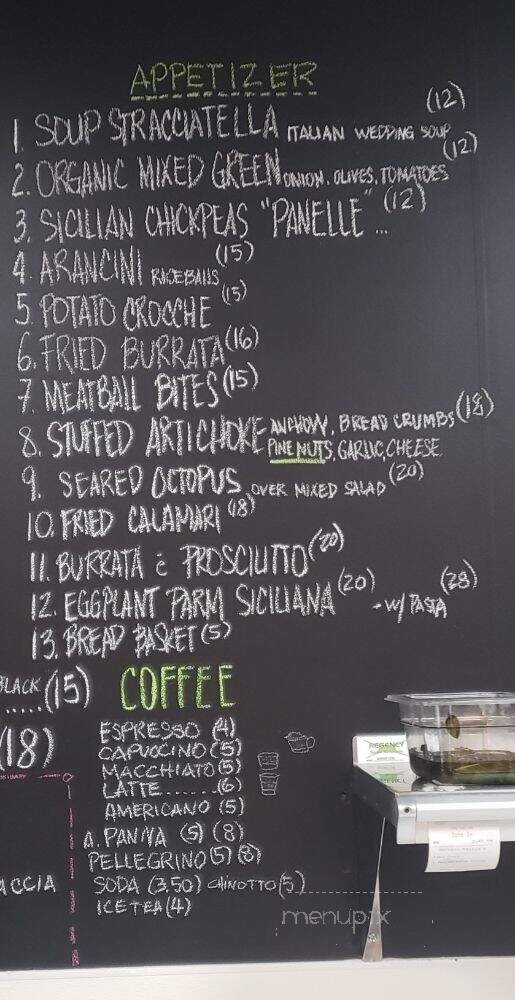 APPETIZER
1. SOUP STRACCIATELLA ITALIAN WEDDING SOUP (12)
2. ORGANIC MIXED GREEN ONION, OLIVES, TOMATOES (12)
3. SICILIAN CHICKPEAS "PANELLE" ... (12)
4. ARANCINI RICEBALLS (15)
5. POTATO CROCCHE (15)
6. FRIED BURRATA (16)
7. MEATBALL BITES (15)
8. STUFFED ARTICHOKE ANCHOVY, BREAD CRUMBS (18)
PINE NUTS, GARLIC, CHEESE
9. SEARED OCTOPUS OVER MIXED SALAD (20)
10. FRIED CALAMARI (18)
11. BURRATA è PROSCIUTTO (20)
12. EGGPLANT PARM SICILIANA (20) - W/ PASTA (28)
13. BREAD BASKET (5)
BLACK (15)
.....
COFFEE
(18)
ESPRESSO (4)
CAPUCCINO (5)
MACCHIATO (5)
LATTE....... (6)
AMERICANO (5)
A. PANNA (5) (8)
PELLEGRINO (5) (8)
ACCIA
SODA (3.50) CHINOTTO (5)
ICE TEA (4)
REGENCY
menupix